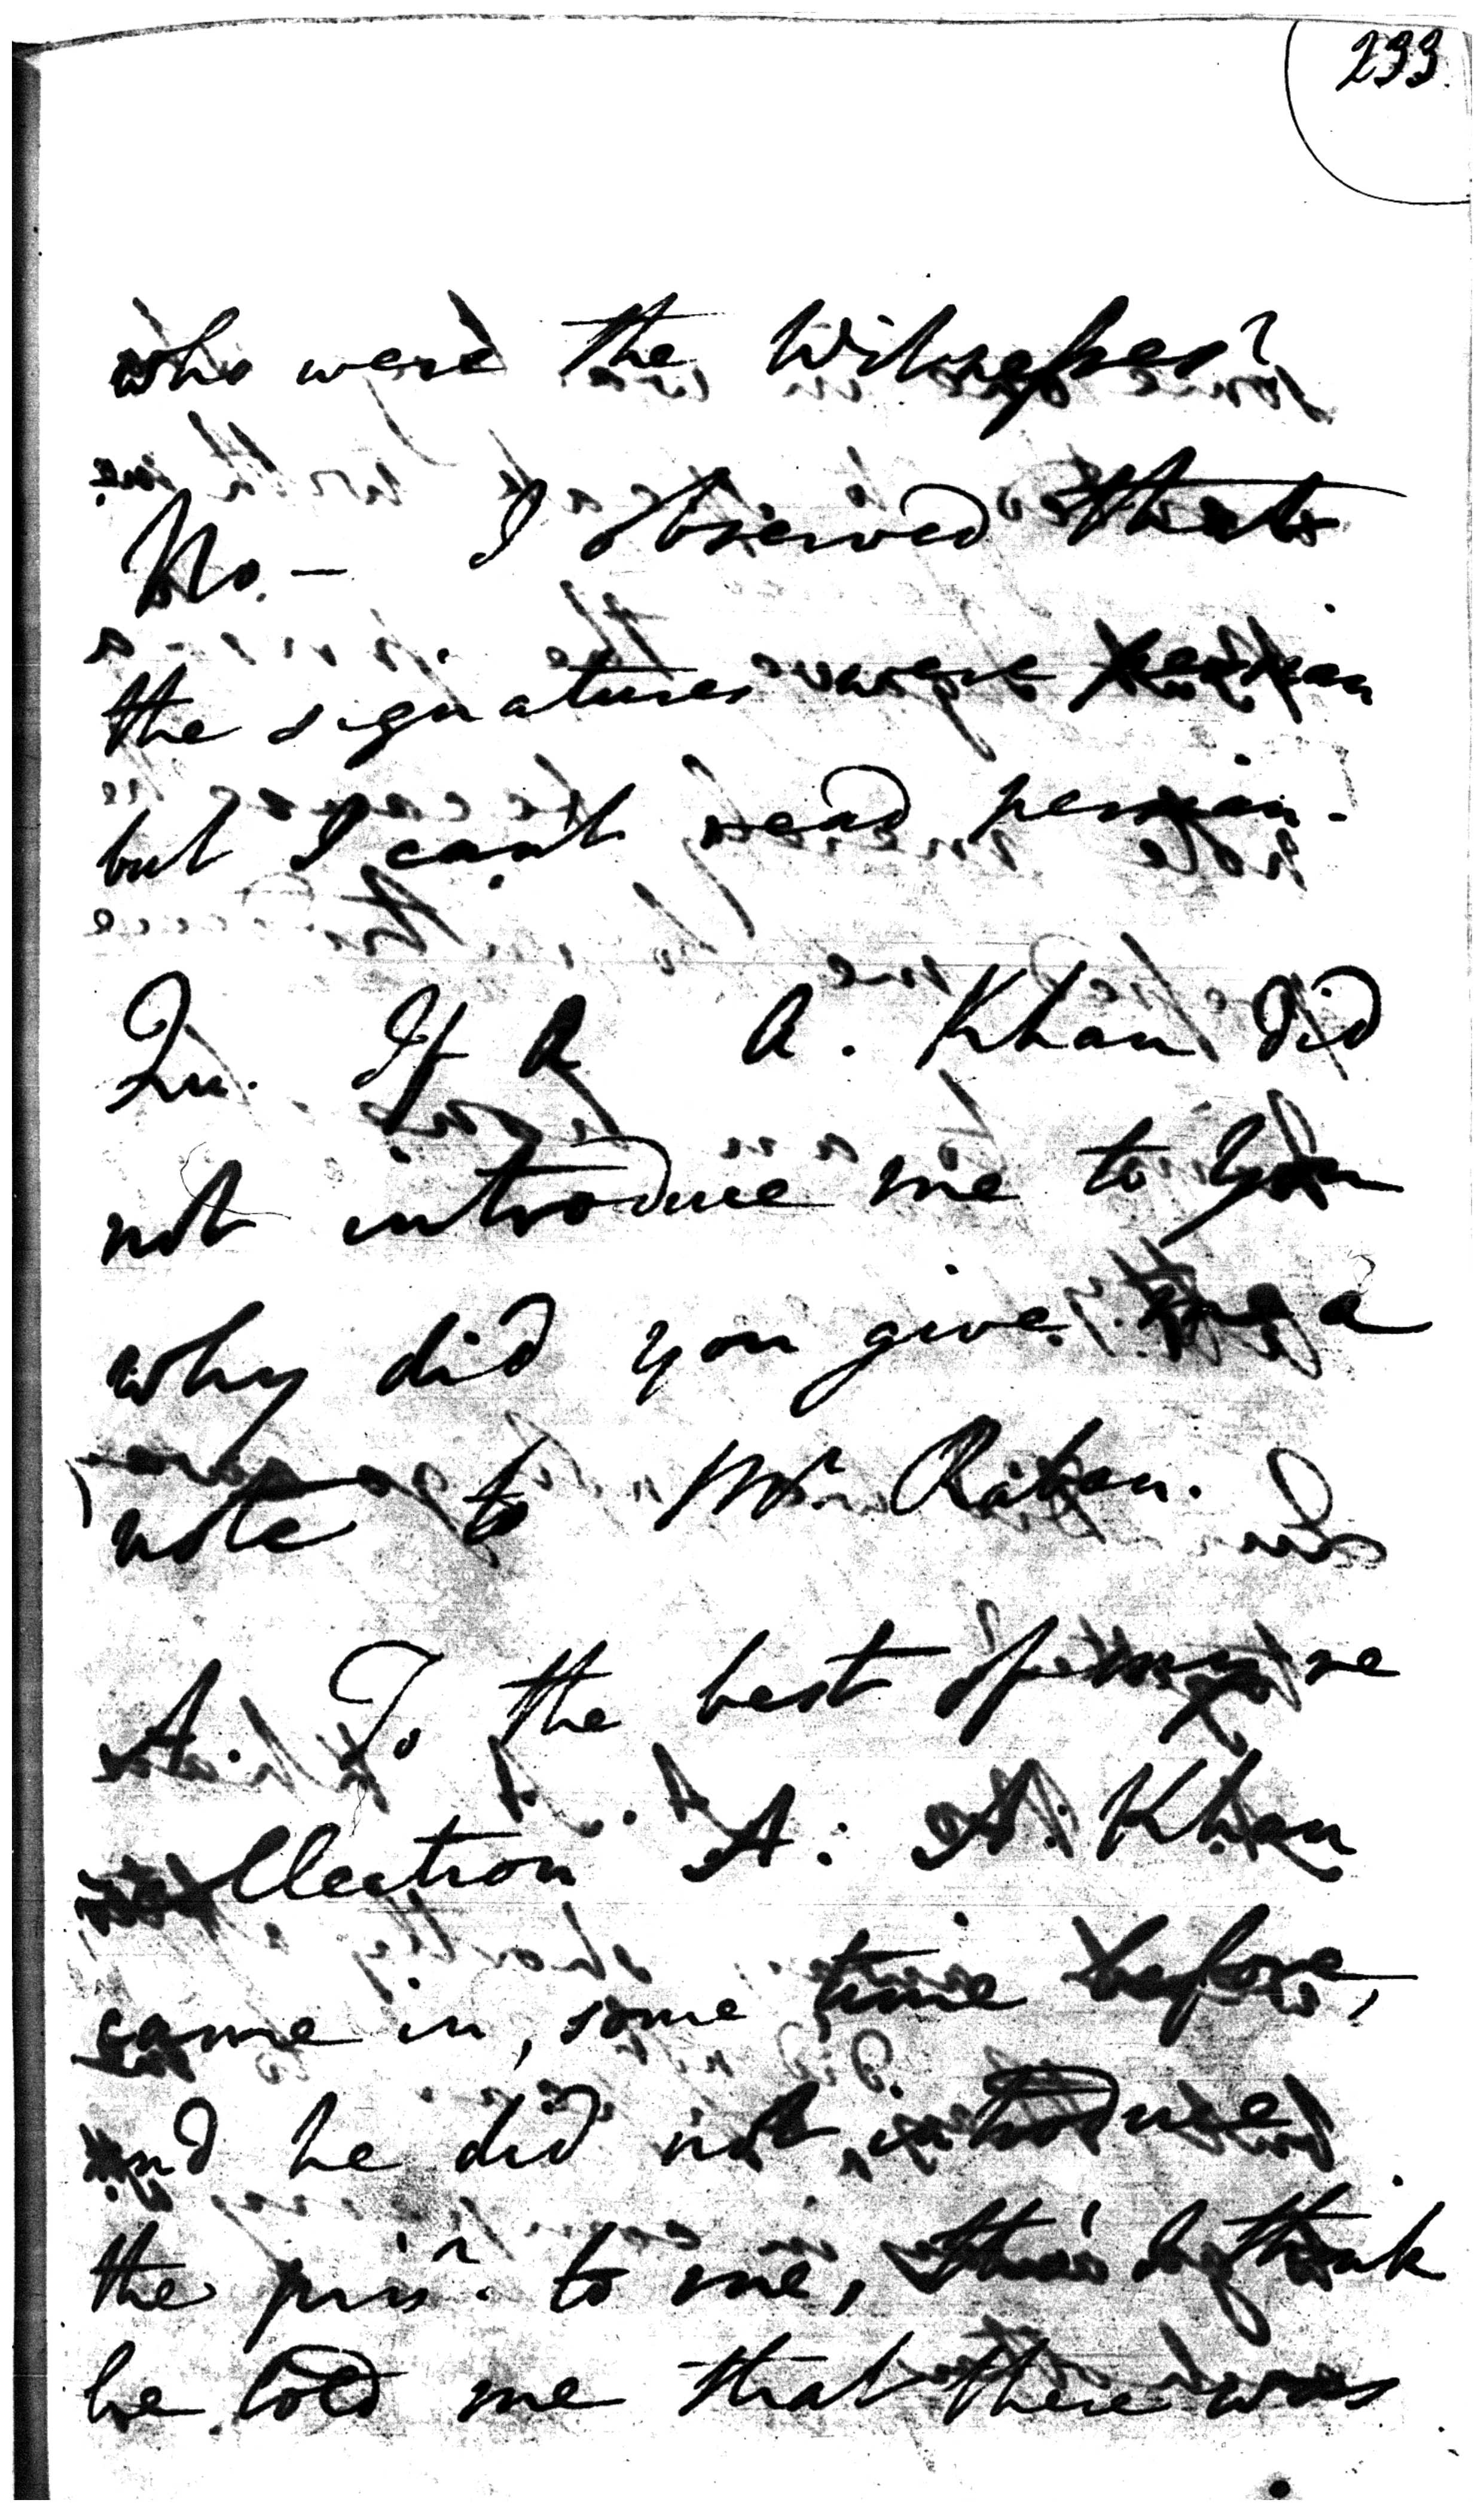 233.
who were the Witnesses?
No. — I observed that
the signatures were persian
but I can't read persian.
Qu. If A A. Khan did
not introduce me to you
why did you give me a
note to Mr.
A. To the best of my re
collection A. A. Khan
came in, some time before,
and he did not introduce
the prisr. to me, tho' I think
he told me that there was